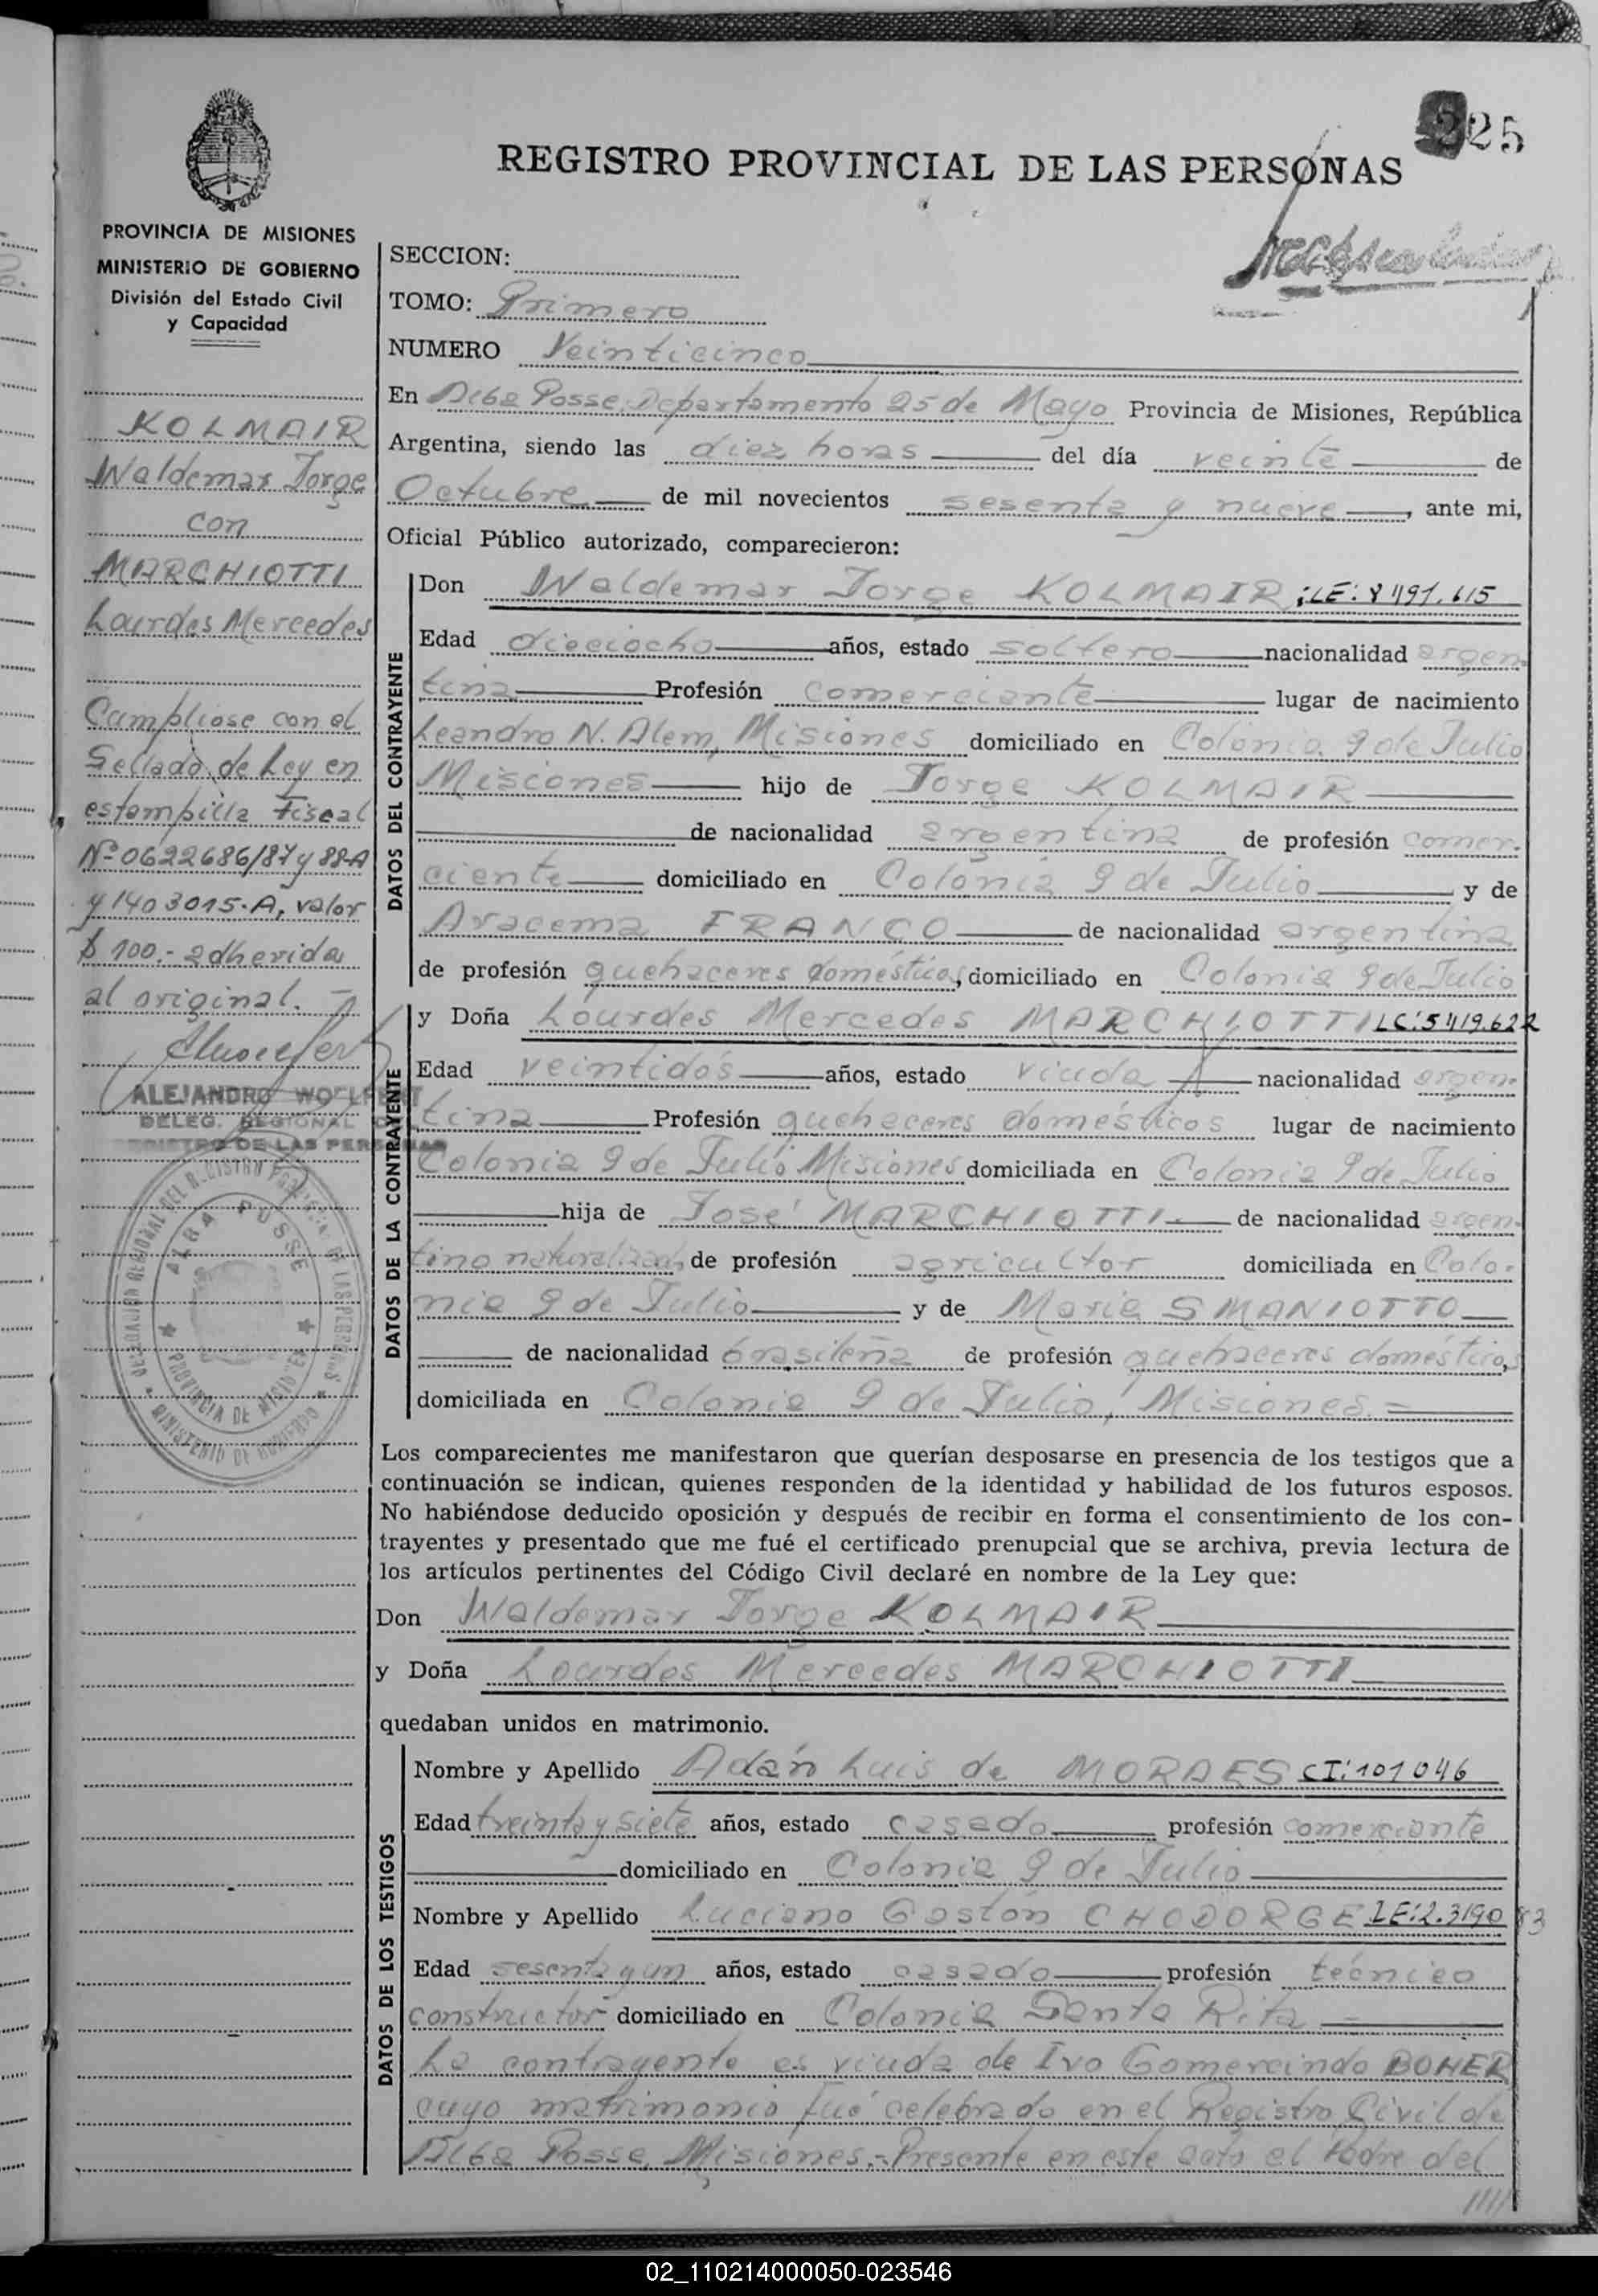 25
REGISTRO PROVINCIAL DE LAS PERSONAS
PROVINCIA DE MISIONES
MINISTERIO DE GOBIERNO
División del Estado Civil
y Capacidad
KOLMAIR
Waldemar Jorge
con
MARCHIOTTI
Lourdes Mercedes
Cumpliose con el
Sellado de Ley en
estampilla fiscal
Nº 0622686/87 y 88-A
y 1403015-A, valor
$ 100.- adherida
al original. =
ALEJANDRO WOLFERT
DELEG. REGIONAL
REGISTRO DE LAS PERSONAS
DELEGACION REGIONAL DEL REGISTRO PROVINCIAL DE LAS PERSONAS
ALBA POSSE
PROVINCIA DE MISIONES
MINISTERIO DE GOBIERNO
SECCION:
TOMO: Primero
NUMERO Veinticinco
En Alba Posse, Departamento 25 de Mayo Provincia de Misiones, República
Argentina, siendo las diez horas del día veinte de
Octubre de mil novecientos sesenta y nueve, ante mi,
Oficial Público autorizado, comparecieron:
DATOS DEL CONTRAYENTE
Don Waldemar Jorge KOLMAIR; LE: 8491.615
Edad dieciocho años, estado soltero nacionalidad argen-
tina Profesión comerciante lugar de nacimiento
Leandro N. Alem, Misiones domiciliado en Colonia 9 de Julio
Misiones hijo de Jorge KOLMAIR
de nacionalidad argentina de profesión comer-
ciente domiciliado en Colonia 9 de Julio y de
Aracema FRANCO de nacionalidad argentina
de profesión quehaceres domésticos, domiciliado en Colonia 9 de Julio
DATOS DE LA CONTRAYENTE
y Doña Lourdes Mercedes MARCHIOTTI LC: 5419.622
Edad veintidós años, estado viuda nacionalidad argen-
tina Profesión quehaceres domésticos lugar de nacimiento
Colonia 9 de Julio Misiones domiciliada en Colonia 9 de Julio
hija de José MARCHIOTTI de nacionalidad argen-
tino naturalizado, de profesión agricultor domiciliada en Colo-
nia 9 de Julio y de María SMANIOTTO
de nacionalidad brasileña de profesión quehaceres domésticos,
domiciliada en Colonia 9 de Julio, Misiones. =
Los comparecientes me manifestaron que querían desposarse en presencia de los testigos que a
continuación se indican, quienes responden de la identidad y habilidad de los futuros esposos.
No habiéndose deducido oposición y después de recibir en forma el consentimiento de los con-
trayentes y presentado que me fué el certificado prenupcial que se archiva, previa lectura de
los artículos pertinentes del Código Civil declaré en nombre de la Ley que:
Don Waldemar Jorge KOLMAIR
y Doña Lourdes Mercedes MARCHIOTTI
quedaban unidos en matrimonio.
DATOS DE LOS TESTIGOS
Nombre y Apellido Adán Luis de MORAES CI: 101046
Edad treinta y siete años, estado casado profesión comerciante
domiciliado en Colonia 9 de Julio
Nombre y Apellido Luciano Gastón CHODORGE LE: 2.3190 83
Edad sesenta y un años, estado casado profesión técnico
constructor domiciliado en Colonia Santa Rita =
La contrayente es viuda de Ivo Gomercindo BOHER
cuyo matrimonio fué celebrado en el Registro Civil de
Alba Posse, Misiones.- Presente en este acto el Padre del
/////
02_110214000050-023546